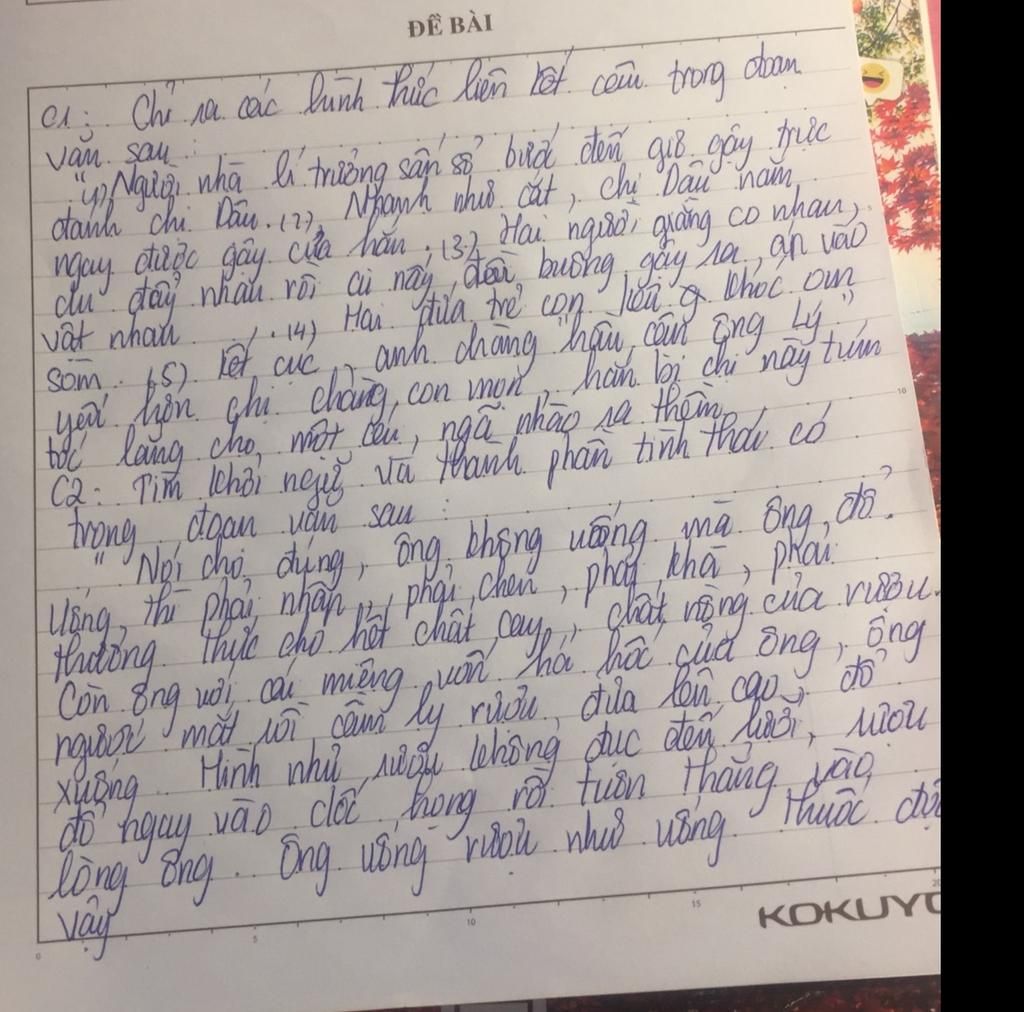 ĐỀ BÀI
C1: Chỉ ra các hình thức liên kết câu trong đoạn
văn sau:
"(1) Người nhà lí trưởng sấn sổ bước đến giơ gậy trực
đánh chị Dậu. (2) Nhanh như cắt, chị Dậu nắm
ngay được gậy của hắn. (3) Hai người giằng co nhau,
du đẩy nhau rồi ai nấy đều buông gậy ra, áp vào
vật nhau. (4) Hai đứa trẻ con kêu khóc om
sòm. (5) Kết cục, anh chàng "hầu cận ông Lý"
yếu hơn chị chàng con mọn, hắn bị chị này túm
tóc lẳng cho một cái, ngã nhào ra thềm
C2: Tìm khởi ngữ và thành phần tình thái có
trong đoạn văn sau:
"Nói cho đúng, ông không uống mà ông đổ.
Uống thì phải nhấp, phải chén, phải khà, phải
thưởng thức cho hết chất cay, chất nồng của rượu.
Còn ông với cái miệng vốn há hốc của ông, ông
ngước mắt rồi cầm ly rượu đưa lên cao, đổ
xuống. Hình như rượu không đục đến lưỡi, rượu
đổ ngay vào cốc họng rồi tuôn thẳng vào
lòng ông. Ông uống rượu như uống thuốc độc
vậy
0 5 10 15 20
5
10
KOKUYO